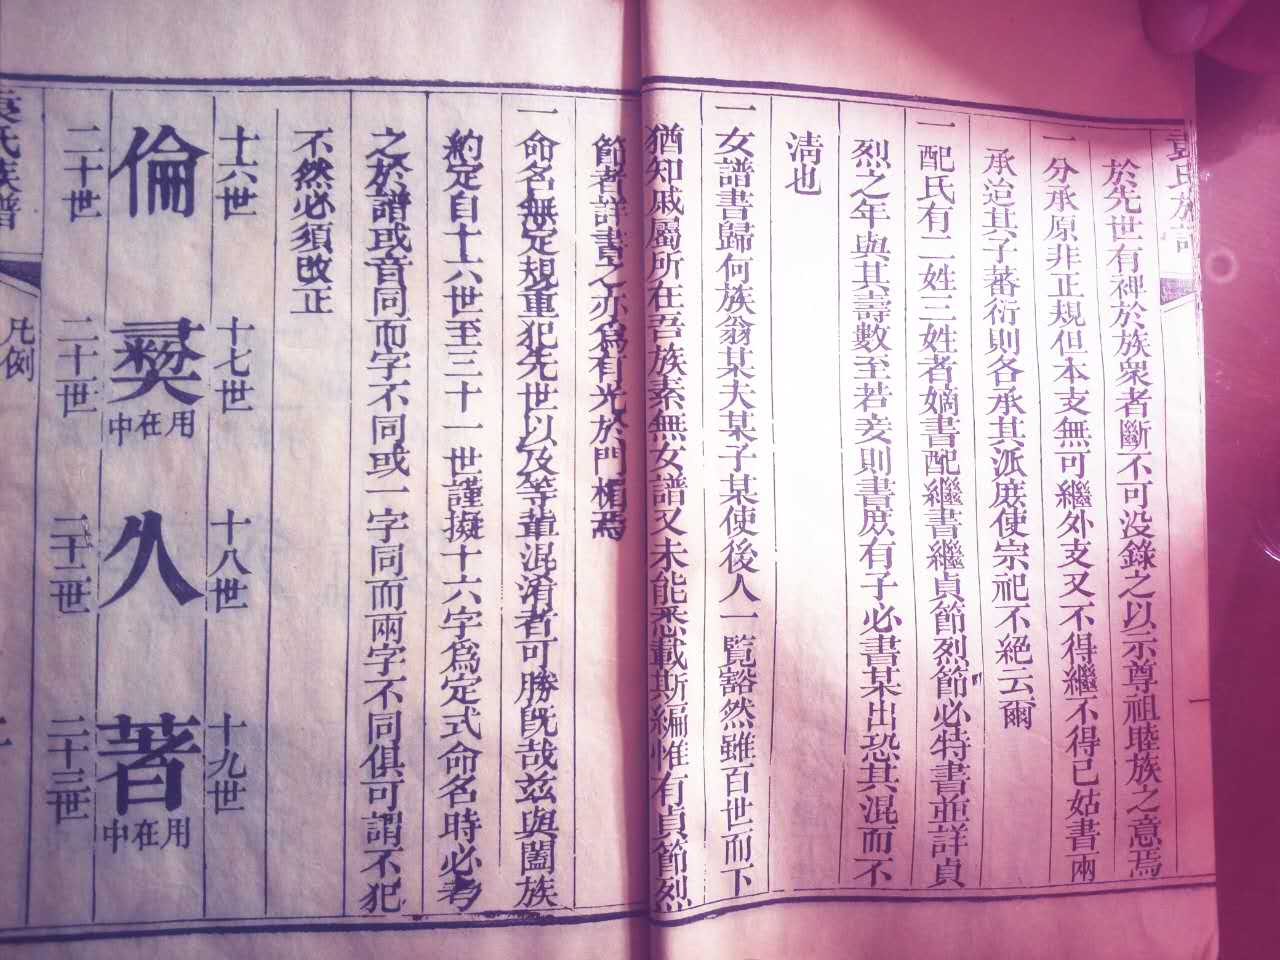 於先世有裨於族衆者斷不可没錄之以示尊祖睦族之意焉
一分承原非正規但本支無可繼外支又不得繼不得已姑書兩
承治其子蕃衍則各承其派庶使宗祀不絕云爾
一配氏有二姓三姓者嫡書配繼書繼貞節烈節必特書並詳貞
烈之年與其壽數至若妾則書庶有子必書某出恐其混而不
淸也
一女譜書歸何族翁某夫某子某使後人一覧豁然雖百世而下
猶知戚屬所在吾族素無女譜又未能悉載斯編惟有貞節烈
節者詳書之亦爲有光於門楣焉
一命名無定規重犯先世以及等輩混淆者可勝旣哉兹與闔族
約定自十六世至三十一世謹擬十六字爲定式命名時必考
之於譜或音同而字不同或一字同而兩字不同俱可謂不犯
不然必須改正
十六世 十七世 十八世 十九世
倫 彞用在中 久 著用在中
二十世 二十一世 二十二世 二十三世
氏族譜 凡例